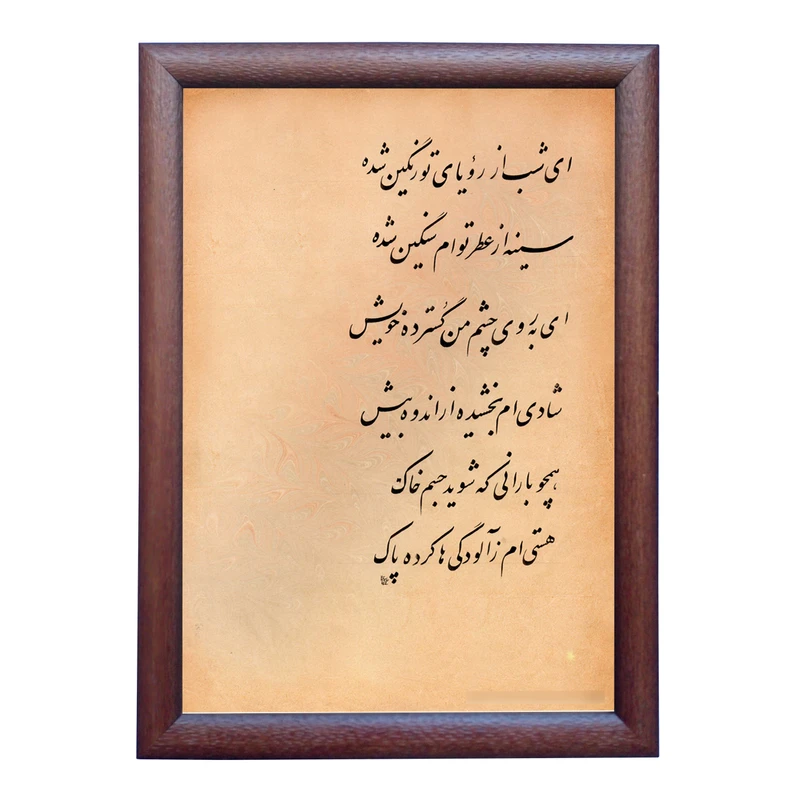 ای شب از رؤیای تو رنگین شده
سینه از عطر توام سنگین شده
ای به روی چشم من گسترده خویش
شادی ام بخشیده از اندوه بیش
همچو بارانی که شوید جسم خاک
هستی ام زآلودگی ها کرده پاک